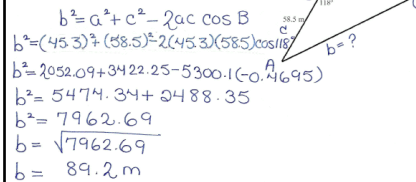 b²=a²+c²-2ac cos B
b²=(45.3)²+(58.5)²-2(45.3)(58.5)cos118°
b²=2052.09+3422.25-5300.1(-0.4695)
b²= 5474.34+2488.35
b²= 7962.69
b= √7962.69
b= 89.2m
118°
58.5 m
C
A
b=?